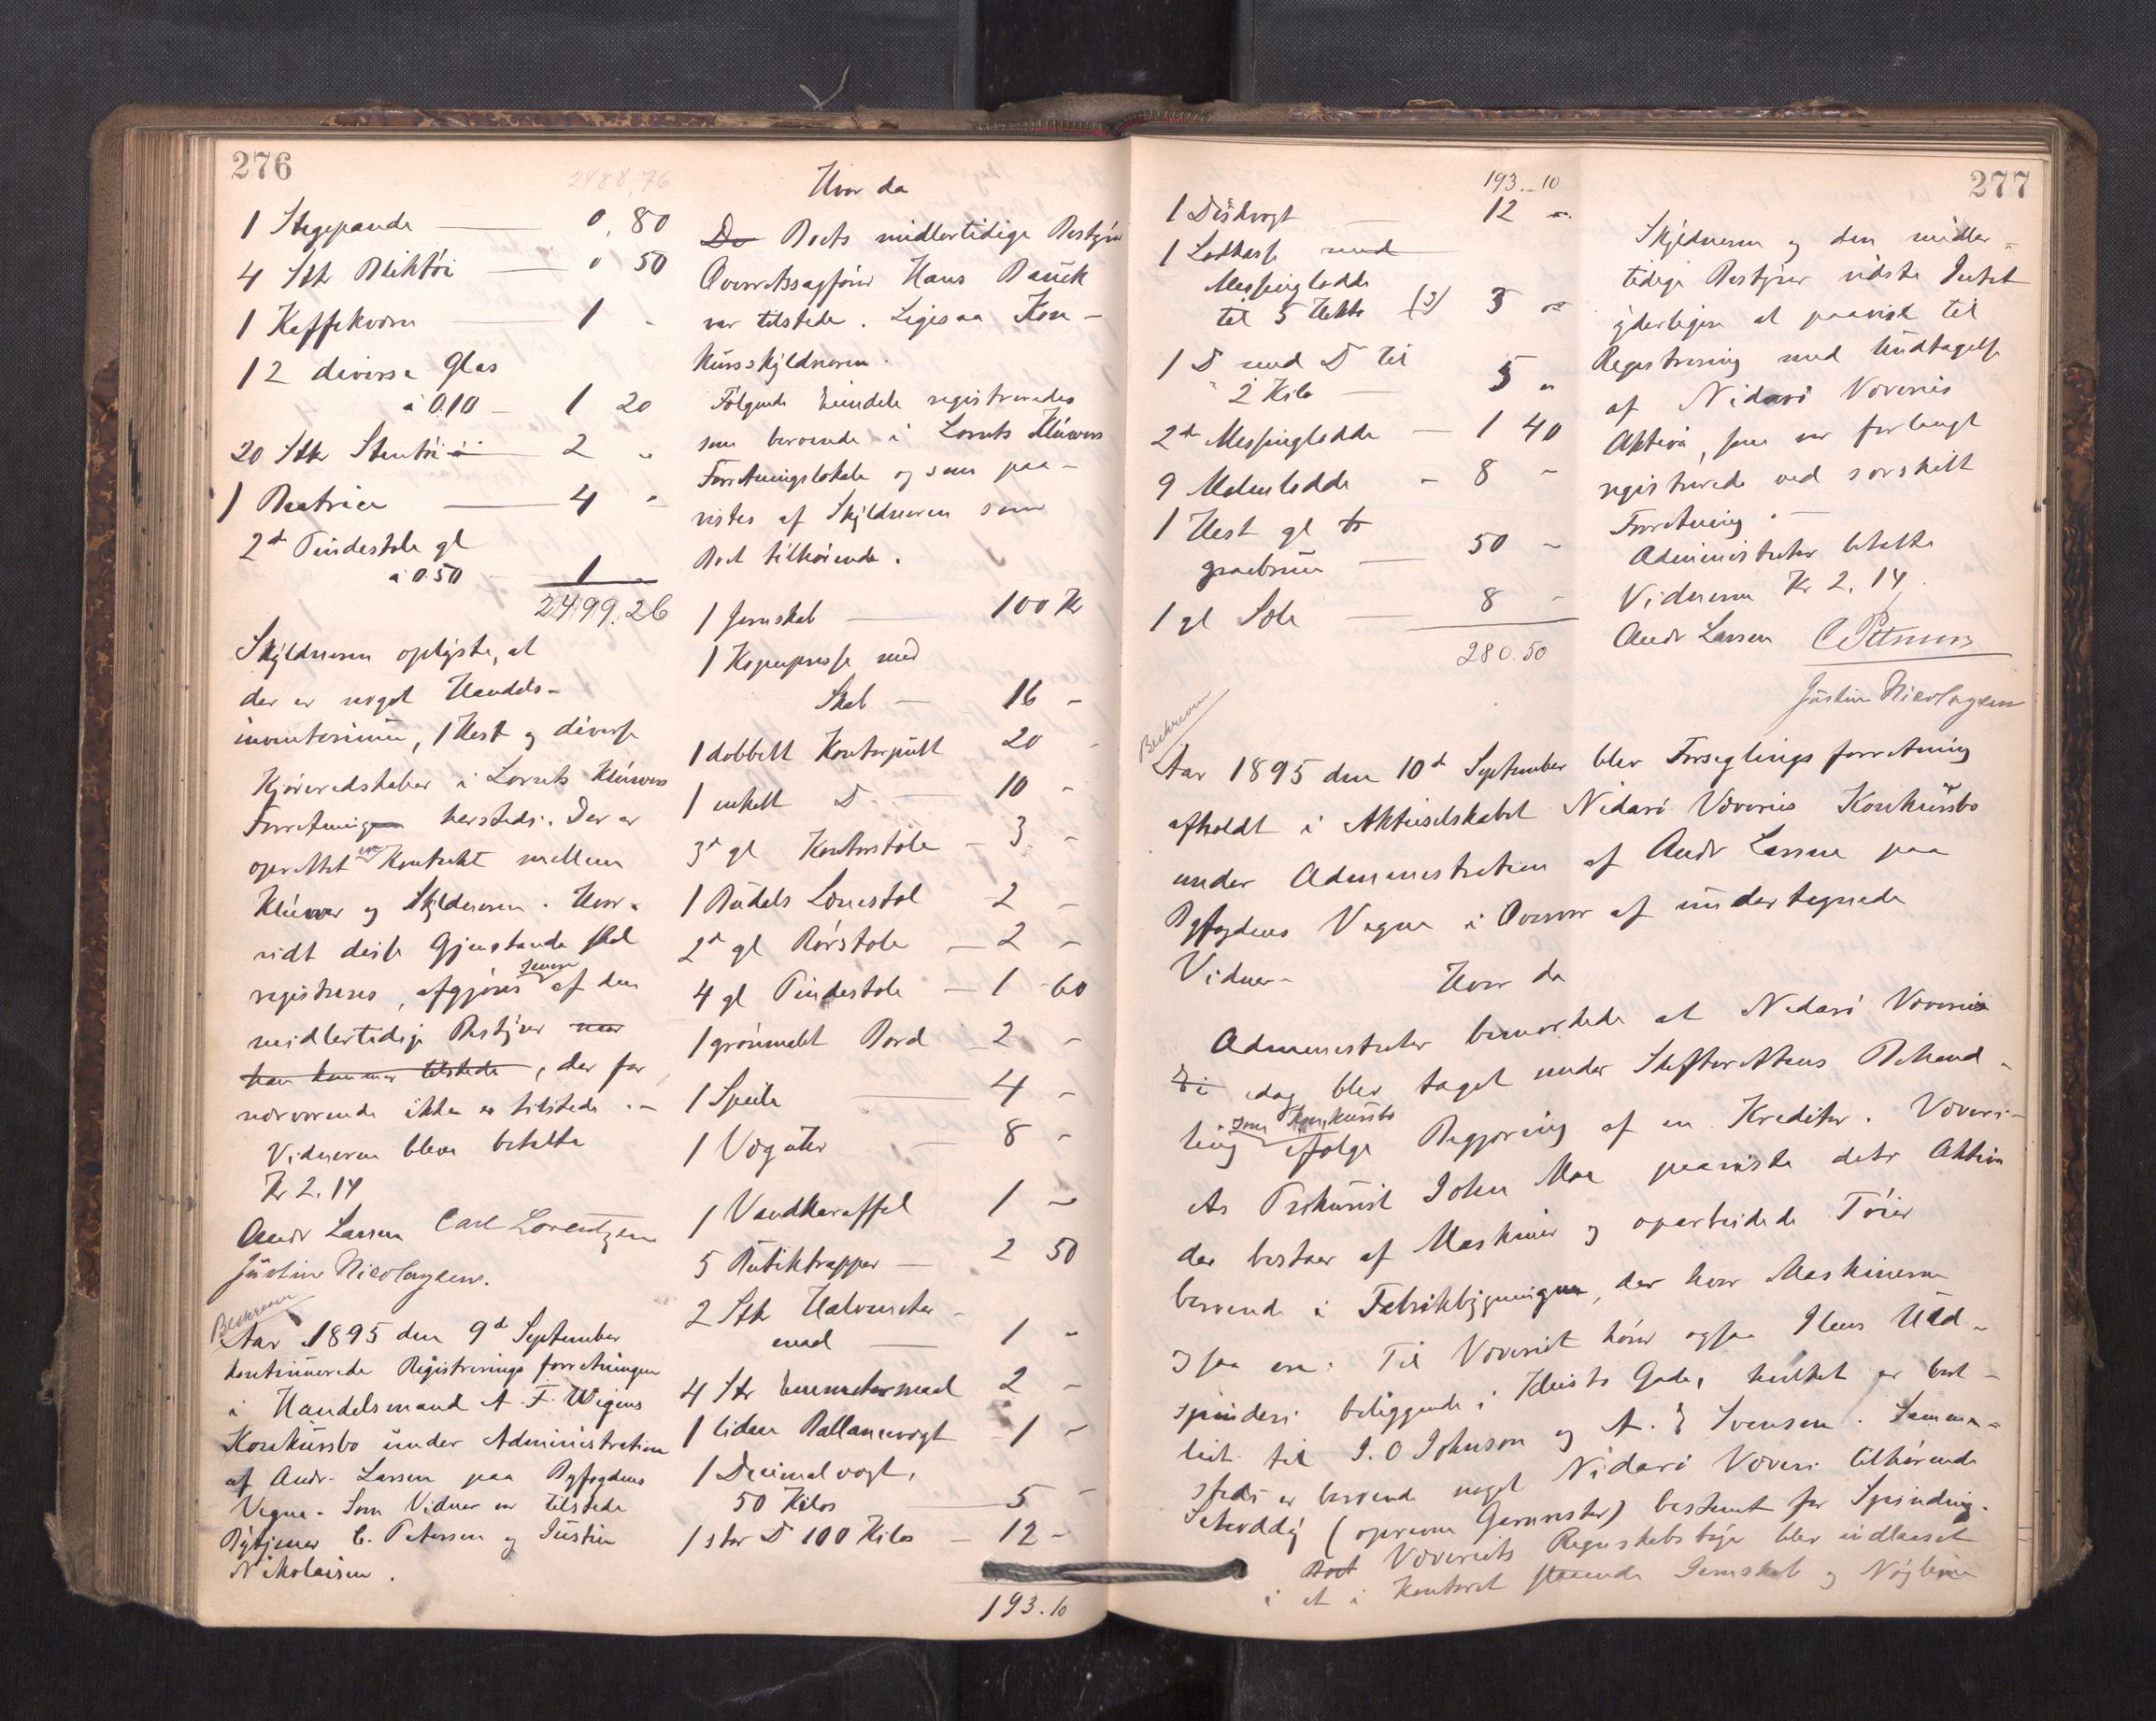 276
2488,76
1 Stegepande — 0,80
4 Stk Bliktøi — 0 50
1 Kaffekværn — 1 -
12 diverse Glas
à 0.10 — 1 20
20 Stkr Stentøi — 2 "
1 — 4 "
2de Pindestole gl
à 0.50 — 1
2499.26
Skyldneren oplyste, at
der er noget Handels-
inventarium, 1 Hest og diverse
Kjøreredskaber i Lorents Klüwers
Forretning hersteds. Der er
oprettet en Kontrakt mellem
Klüwer og Skyldneren. Hvor-
vidt disse Gjenstande skal
registreres, afgjøres senere af den
midlertidige Bestyrer naar
han kommer tilstede, der for
nærværende ikke er tilstede.-
Vidnerne bleve betalte
Kr 2.14
Andr Larsen Carl Lorentzen
Justine Nicolaysen.
Beskreven
Aar 1895 den 9de September
kontinuerede Registreringsforretningen
i Handelsmand A. F. Wigens
Konkursbo under Administration
af Andr. Larsen paa Byfogdens
Vegne. Som Vidner var tilstede
Bytjener C. Petersen og Justine
Nikolaisen.
Hvor da
De Boets midlertidige Bestyrer
Overretssagfører Hans Bauck
var tilstede. Ligesaa Kon-
kursskyldneren.
Følgende Eiendele registreredes
som beroende i Lorents Klüwers
Forretningslokale og som paa-
vistes af Skyldneren som
Boet tilhørende.
1 Jernskab — 100 Kr
1 Kopiepresse med
Skab — 16 -
1 dobbelt Kontorpult 20 -
1 enkelt D. — 10 -
3de gl Kontorstole — 3 -
1 Lænestol 2 -
2de gl Rørstole — 2 -
4 gl Pindestole — 1 60
1 grønmalt Bord 2 -
1 Speile 4 -
1 Væguhr — 8 -
1 Vandkaraffel 1 -
5 Butiktrapper — 2 50
2 Stk Halvmeter-
maal — 1 -
4 Stk Enmetermaal 2 -
1 liden Ballancevægt 1 -
1 Decimalvægt,
50 Kilos — 5 -
1 stor D 100 Kilos — 12 -
193.10
277
193.10
1 Diskvægt — 12 "
1 Lodkasse med
Messinglodde
til 5 Hekto (3) 3 "
1 D med D til
2 Kilo — 5 "
2de Messinglodde — 1 40
9 Malmlodde — 8 -
1 Hest gl
graabrun — 50 -
1 gl Sele — 8 -
280.50
Skyldneren og den midler-
tidige Bestyrer vidste Intet
yderligere at paavise til
Registrering med Undtagelse
af Nidarø Væveris
Aktiva, som var forlangt
registrerede ved særskilt
Forretning. -
Administrator betalte
Vidnerne Kr 2.14.
Andr Larsen C Petersen
Justine Nicolaysen
Beskreven
Aar 1895 den 10de September blev Forseglingsforretning
afholdt i Aktieselskabet Nidarø Væveries Konkursbo
under Administration af Andr Larsen paa
Byfogdens Vegne i Overvær af undertegnede
Vidner-
Hvor da
Administrator bemærkede at Nidarø Væveri
idag blev taget under Skifterettens Behand-
ling som Konkursbo ifølge Begjæring af en Kreditor. Væveri-
ets Prokurist John Moe paaviste dets Aktiva
der bestaar af Maskiner og oparbeidede Tøier
beroende i Fabrikbygningen, der hvor Maskinerne
ogsaa ere. Til Væveriet hører ogsaa Ilens Uld-
spinderi beliggende i Gade, hvilket er bort-
leiet til J. O Johnson og A. E Svensen. Samme-
steds er beroende noget Nidarø Væveri tilhørende
(oprevne Garnrester) bestemt for Spinding.
Boet Væveriets Regnskabsbøger blev indlaaset
i et i Kontoret staaende Jernskab og Nøglerne